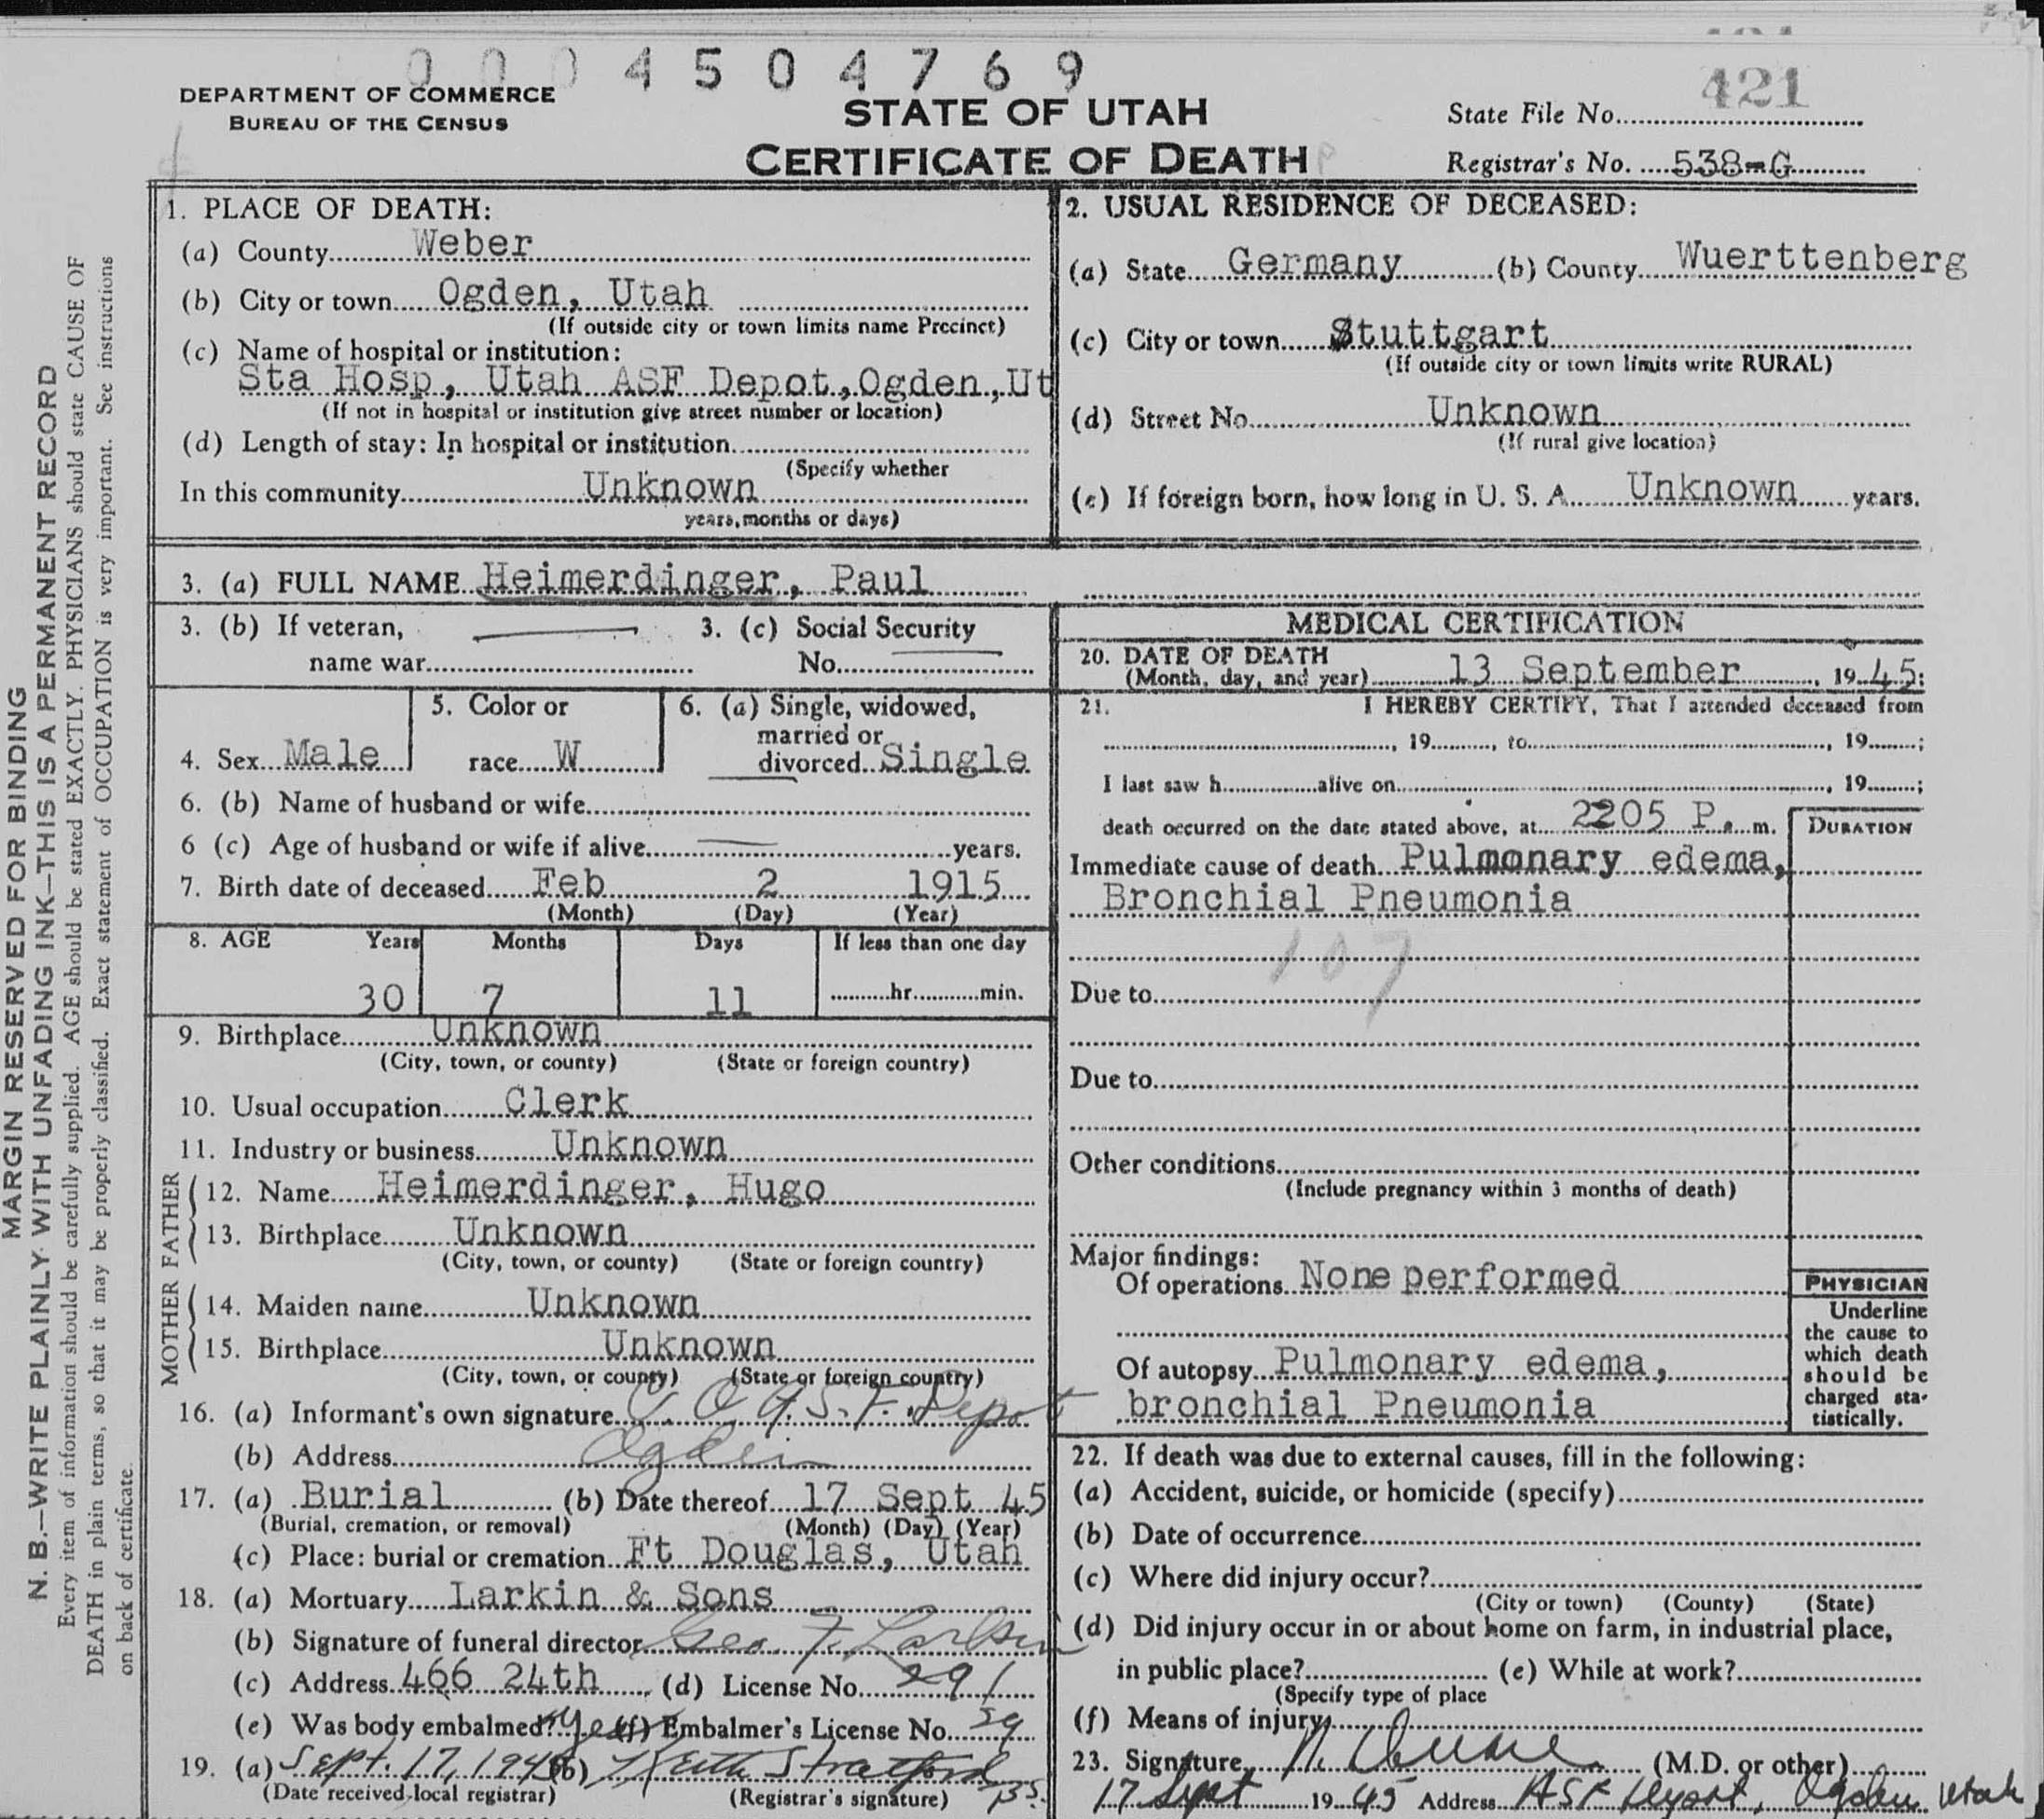 0 0 0 4 5 0 4 7 6 9
DEPARTMENT OF COMMERCE
BUREAU OF THE CENSUS
STATE OF UTAH
CERTIFICATE OF DEATH
State File No. 421
Registrar's No. 538-G
MARGIN RESERVED FOR BINDING
N. B.—WRITE PLAINLY WITH UNFADING INK—THIS IS A PERMANENT RECORD
Every item of information should be carefully supplied. AGE should be stated EXACTLY. PHYSICIANS should state CAUSE OF
DEATH in plain terms, so that it may be properly classified. Exact statement of OCCUPATION is very important. See instructions
on back of certificate.
1. PLACE OF DEATH:
(a) County Weber
(b) City or town Ogden, Utah
(If outside city or town limits name Precinct)
(c) Name of hospital or institution:
Sta Hosp, Utah ASF Depot, Ogden, Ut
(If not in hospital or institution give street number or location)
(d) Length of stay: In hospital or institution
(Specify whether
In this community Unknown
years, months or days)
2. USUAL RESIDENCE OF DECEASED:
(a) State Germany (b) County Wuerttenberg
(c) City or town Stuttgart
(If outside city or town limits write RURAL)
(d) Street No. Unknown
(If rural give location)
(e) If foreign born, how long in U. S. A. Unknown years.
3. (a) FULL NAME Heimerdinger, Paul
3. (b) If veteran,
name war
3. (c) Social Security
No.
4. Sex Male
5. Color or
race W
6. (a) Single, widowed,
married or
divorced Single
6. (b) Name of husband or wife
6 (c) Age of husband or wife if alive years.
7. Birth date of deceased Feb 2 1915
(Month) (Day) (Year)
8. AGE Years Months Days If less than one day
30 7 11 hr. min.
9. Birthplace Unknown
(City, town, or county) (State or foreign country)
10. Usual occupation Clerk
11. Industry or business Unknown
FATHER
12. Name Heimerdinger, Hugo
13. Birthplace Unknown
(City, town, or county) (State or foreign country)
MOTHER
14. Maiden name Unknown
15. Birthplace Unknown
(City, town, or county) (State or foreign country)
16. (a) Informant's own signature C. O. A.S.F. Depot
(b) Address Ogden
17. (a) Burial (b) Date thereof 17 Sept 45
(Burial, cremation, or removal) (Month) (Day) (Year)
(c) Place: burial or cremation Ft Douglas, Utah
18. (a) Mortuary Larkin & Sons
(b) Signature of funeral director Geo. F. Larkin
(c) Address 466 24th (d) License No. 291
(e) Was body embalmed? Yes (f) Embalmer's License No. 59
19. (a) Sept. 17, 1945 (b) Keith Stratford
(Date received local registrar) (Registrar's signature)
MEDICAL CERTIFICATION
20. DATE OF DEATH
(Month, day, and year) 13 September, 1945;
21. I HEREBY CERTIFY, That I attended deceased from
, 19 , to , 19 ;
I last saw h alive on , 19 ;
death occurred on the date stated above, at 2205 P. m.
DURATION
Immediate cause of death Pulmonary edema,
Bronchial Pneumonia
107
Due to
Due to
Other conditions
(Include pregnancy within 3 months of death)
Major findings:
Of operations None performed
Of autopsy Pulmonary edema,
bronchial Pneumonia
PHYSICIAN
Underline
the cause to
which death
should be
charged sta-
tistically.
22. If death was due to external causes, fill in the following:
(a) Accident, suicide, or homicide (specify)
(b) Date of occurrence
(c) Where did injury occur?
(City or town) (County) (State)
(d) Did injury occur in or about home on farm, in industrial place,
in public place? (e) While at work?
(Specify type of place
(f) Means of injury
23. Signature (M.D. or other)
17 Sept 1945 Address ASF Depot, Ogden Utah